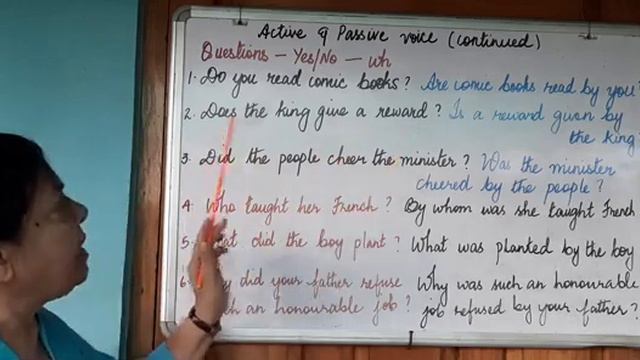 Active & Passive voice (continued)
Questions - Yes/No - wh
1. Do you read comic books? Are comic books read by you?
2. Does the king give a reward? Is a reward given by
the king
3. Did the people cheer the minister? Was the minister
cheered by the people?
4. Who taught her French? By whom was she taught French
5. at did the boy plant? What was planted by the boy
6. y did your father refuse Why was such an honourable
ch an honourable job? job refused by your father?